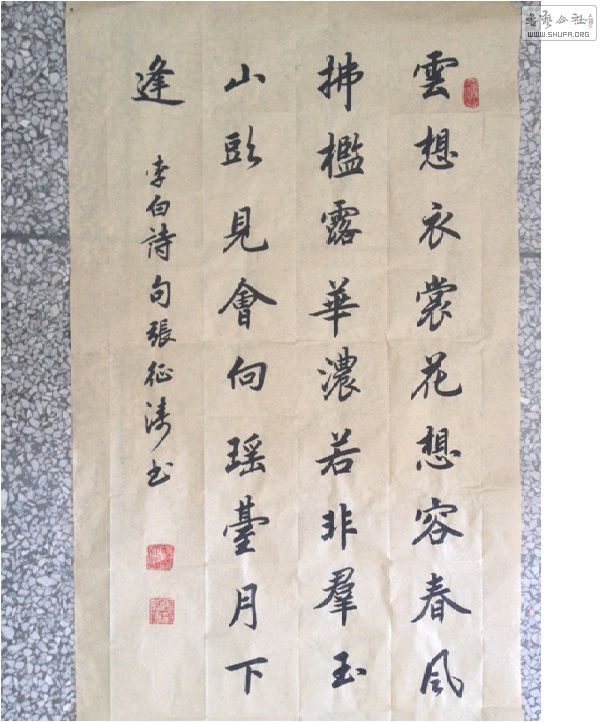 雲想衣裳花想容春風
拂檻露華濃若非羣玉
山頭見會向瑶臺月下
逢
李白詩句張征濤书
书艺公社
WWW.SHUFA.ORG